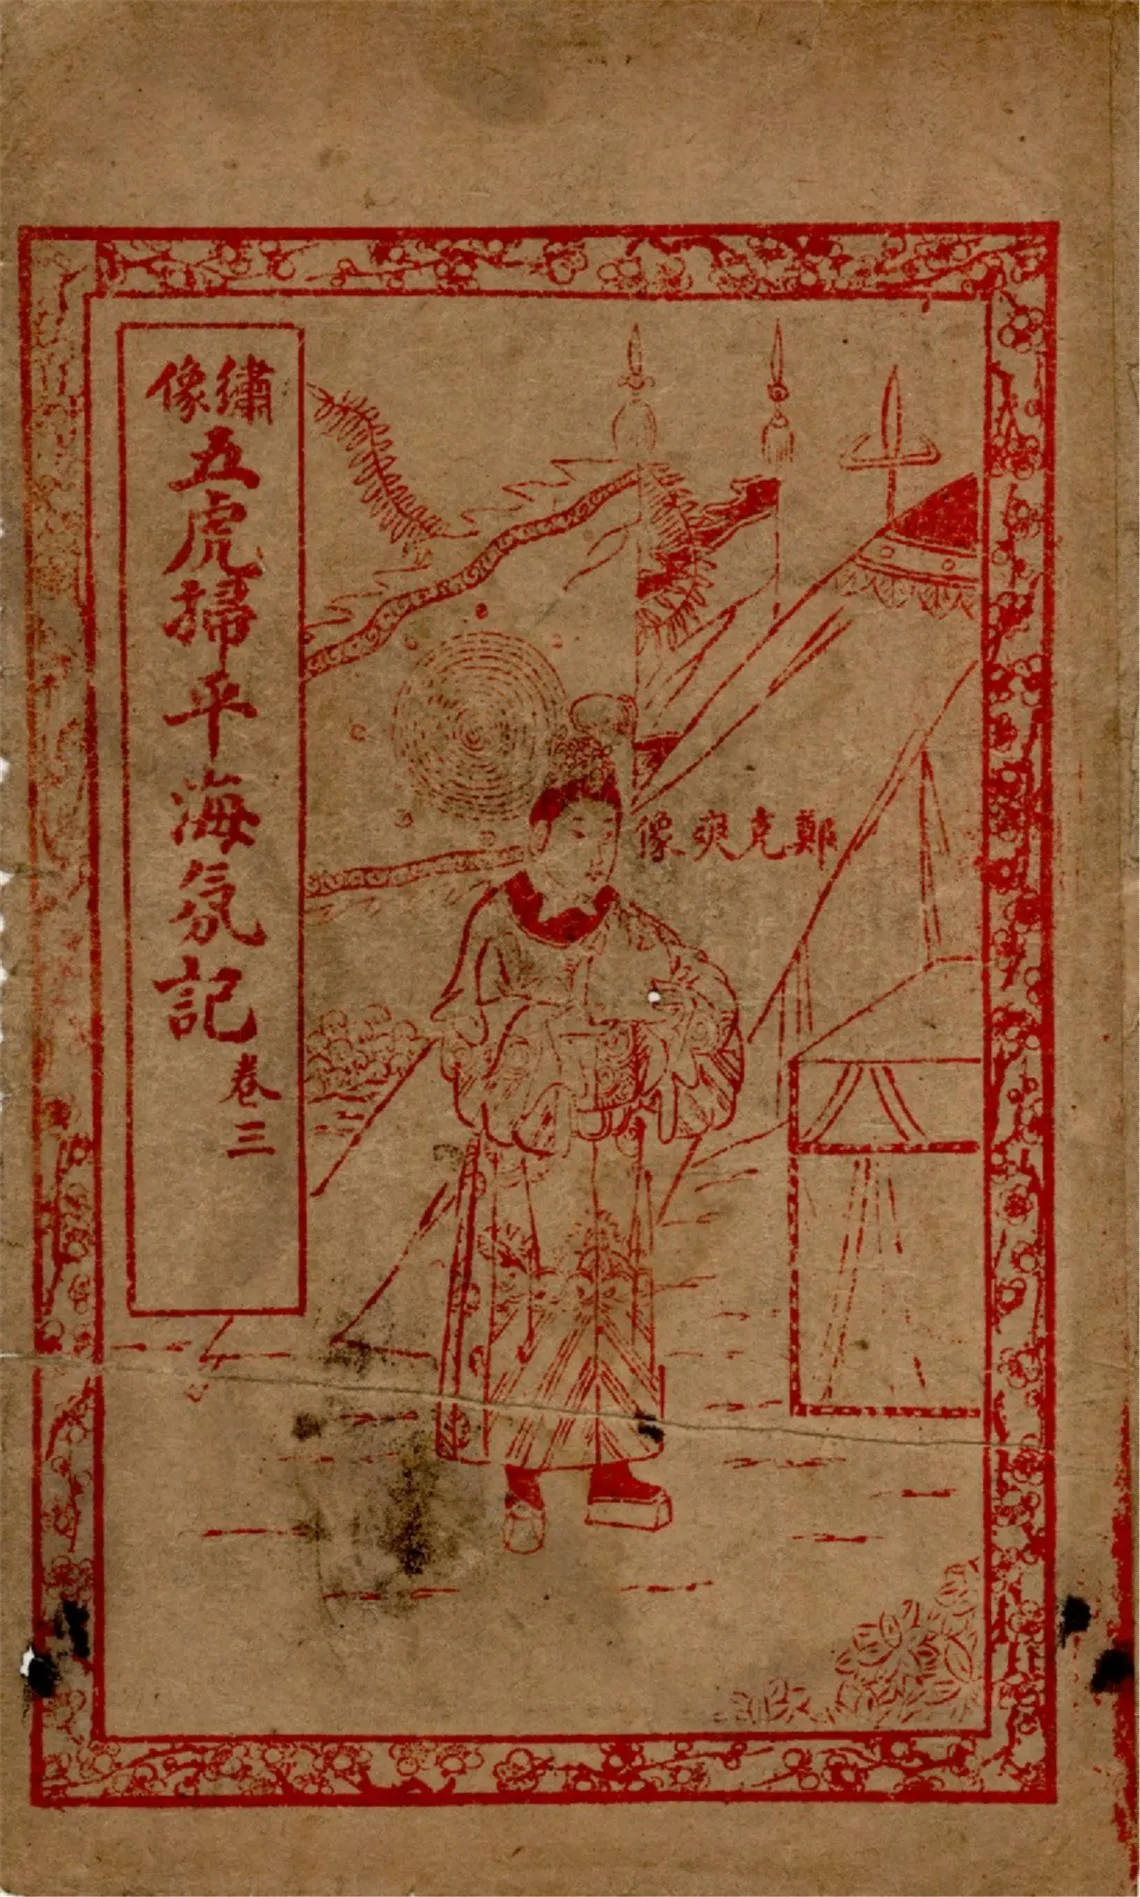 繡像
五虎掃平海氛記
卷三
鄭克爽像